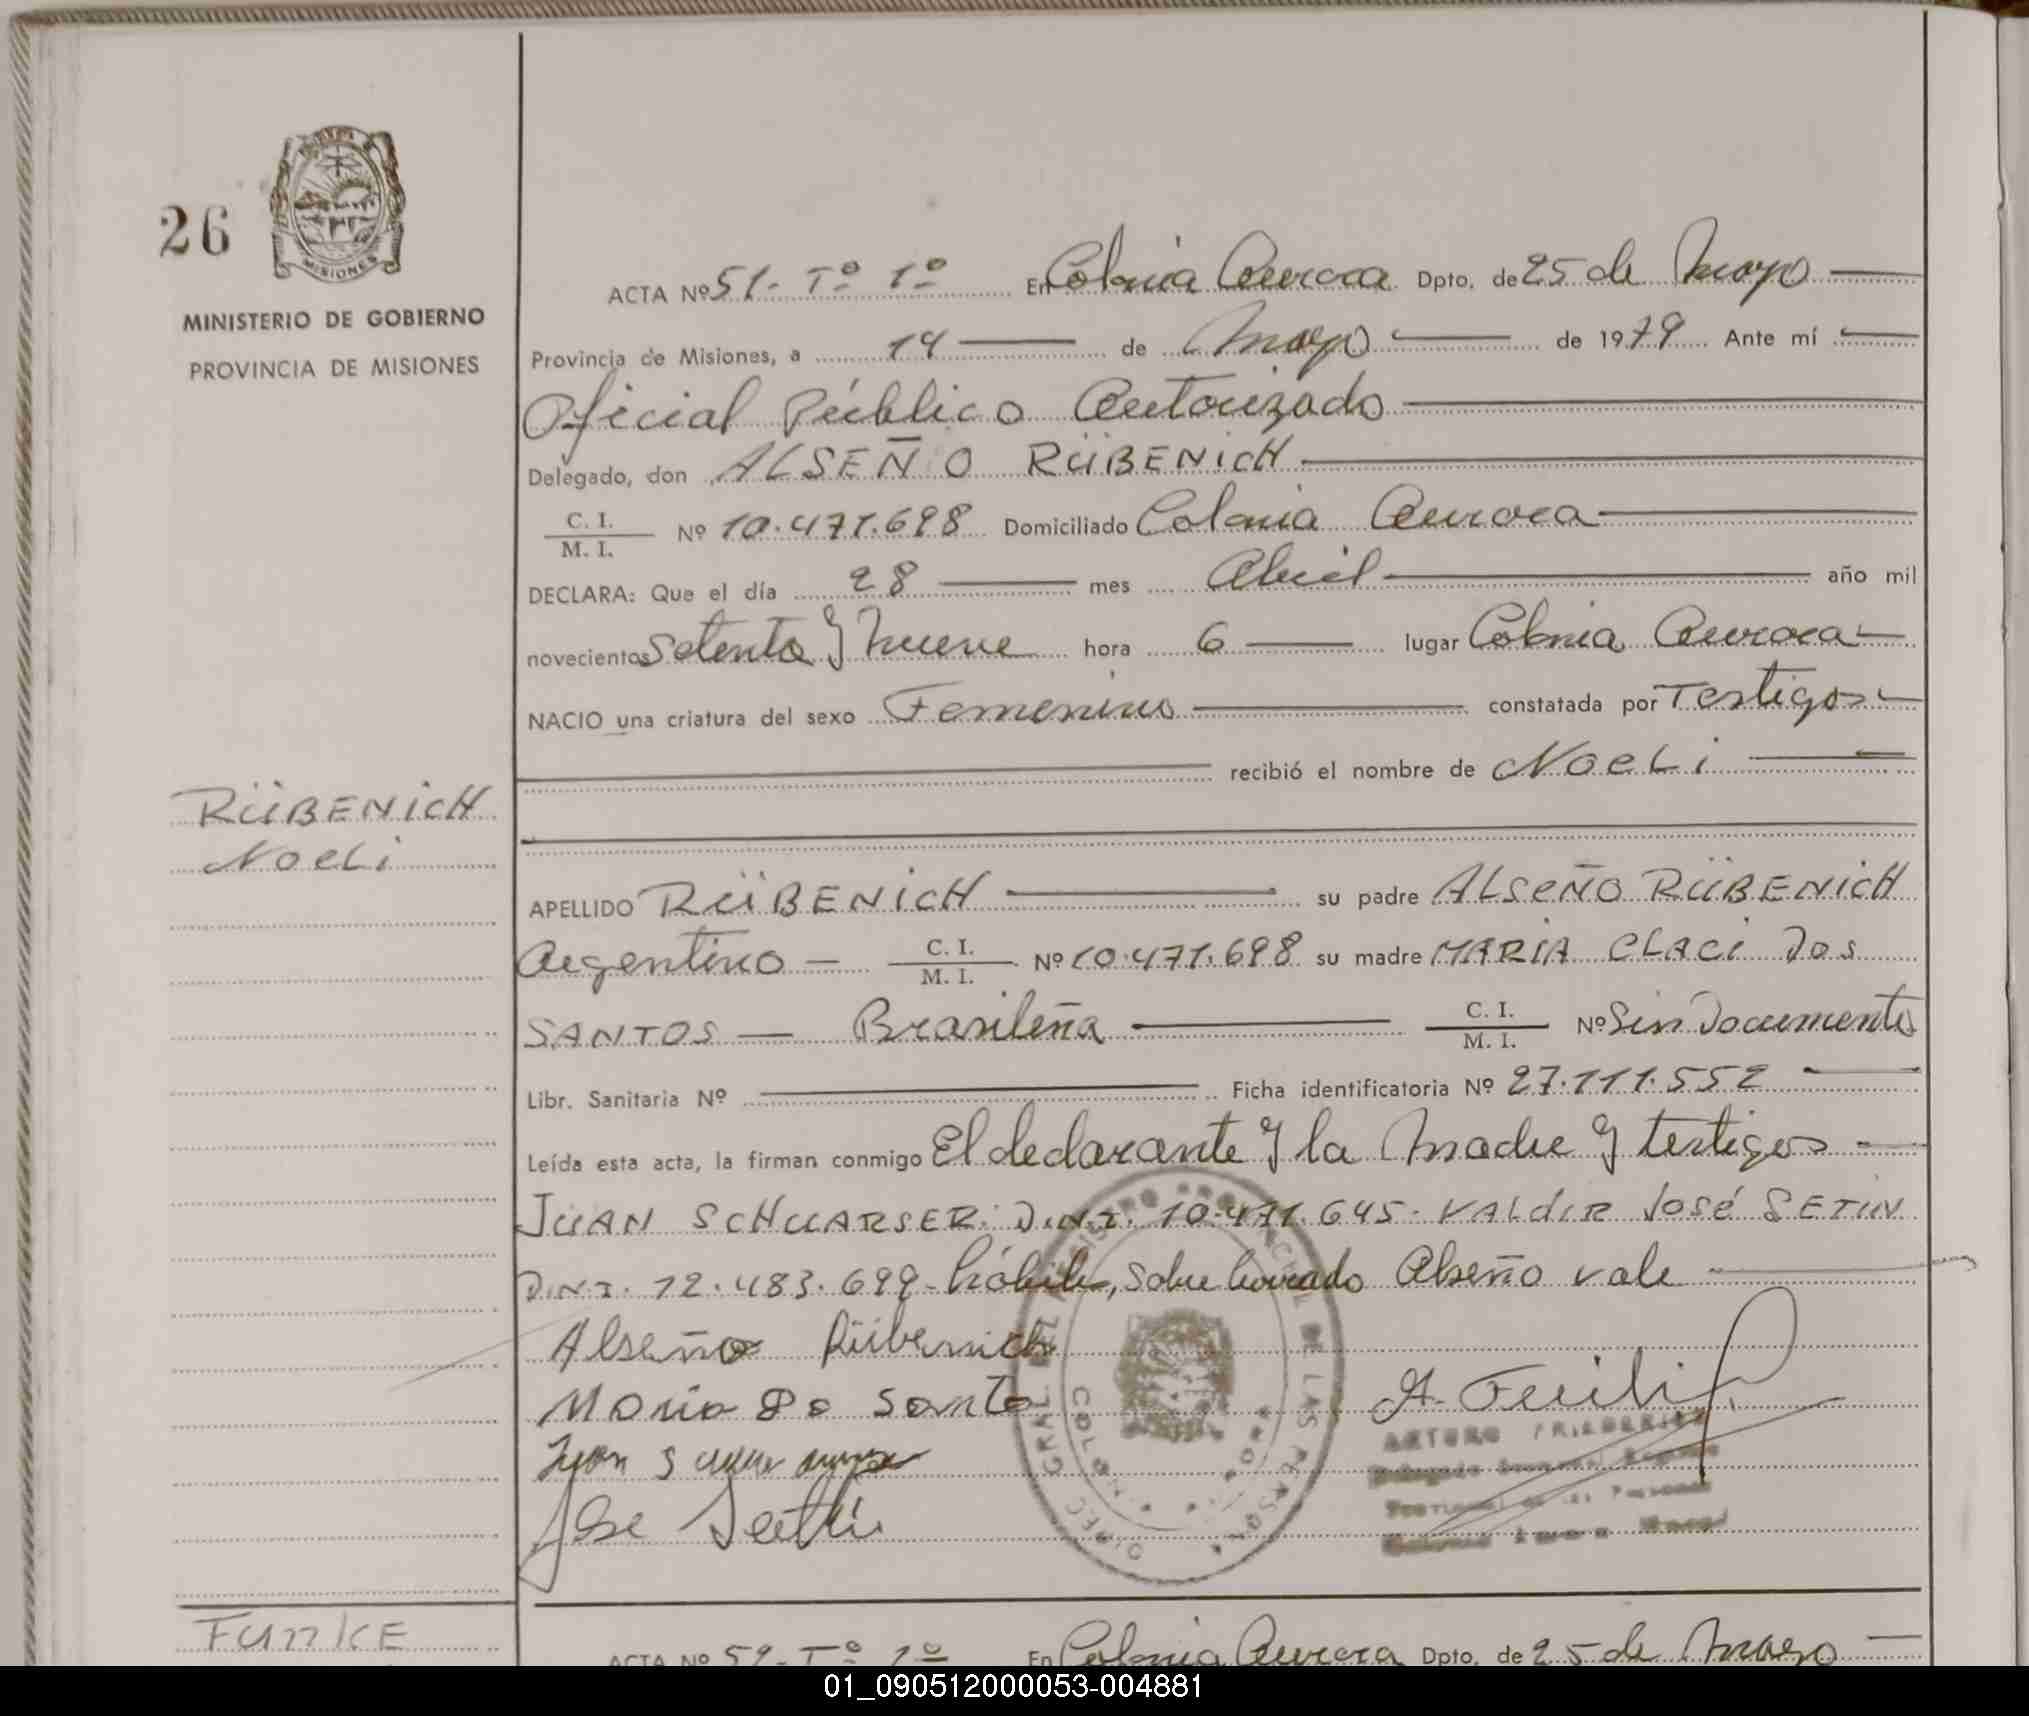 26
MISIONES
MINISTERIO DE GOBIERNO
PROVINCIA DE MISIONES
ACTA Nº 51- Tº 1º En Colonia Aurora Dpto. de 25 de Mayo
Provincia de Misiones, a 14 de Mayo de 1979 Ante mí
Oficial Público Autorizado
Delegado, don ALSEÑO RÜBENICH
C. I. / M. I. Nº 10.471.698 Domiciliado Colonia Aurora
DECLARA: Que el día 28 mes Abril año mil
novecientos Setenta y nueve hora 6 lugar Colonia Aurora
NACIO una criatura del sexo Femenino constatada por Testigos
recibió el nombre de NOELI
RÜBENICH
NOELI
APELLIDO RÜBENICH su padre ALSEÑO RÜBENICH
Argentino C. I. / M. I. Nº 10.471.698 su madre MARIA CLACI DOS
SANTOS Brasileña C. I. / M. I. Nº Sin Documentos
Libr. Sanitaria Nº Ficha identificatoria Nº 27.111.552
Leída esta acta, la firman conmigo El declarante y la Madre y testigos
JUAN SCHUARSER D.N.I. 10.471.645. VALdIR JOSÉ SETIN
D.N.I. 12.483.699- hábiles, sobre borrado Alseño vale
Alseño Rübenich
Maria Do Santo
Juan
Jose
A.
ARTURO
DIREC. GRAL. DEL REGISTRO PROVINCIAL DE LAS PERSONAS
FUNKE
ACTA Nº 52- Tº 1º En Colonia Aurora Dpto. de 25 de Mayo
01_090512000053-004881